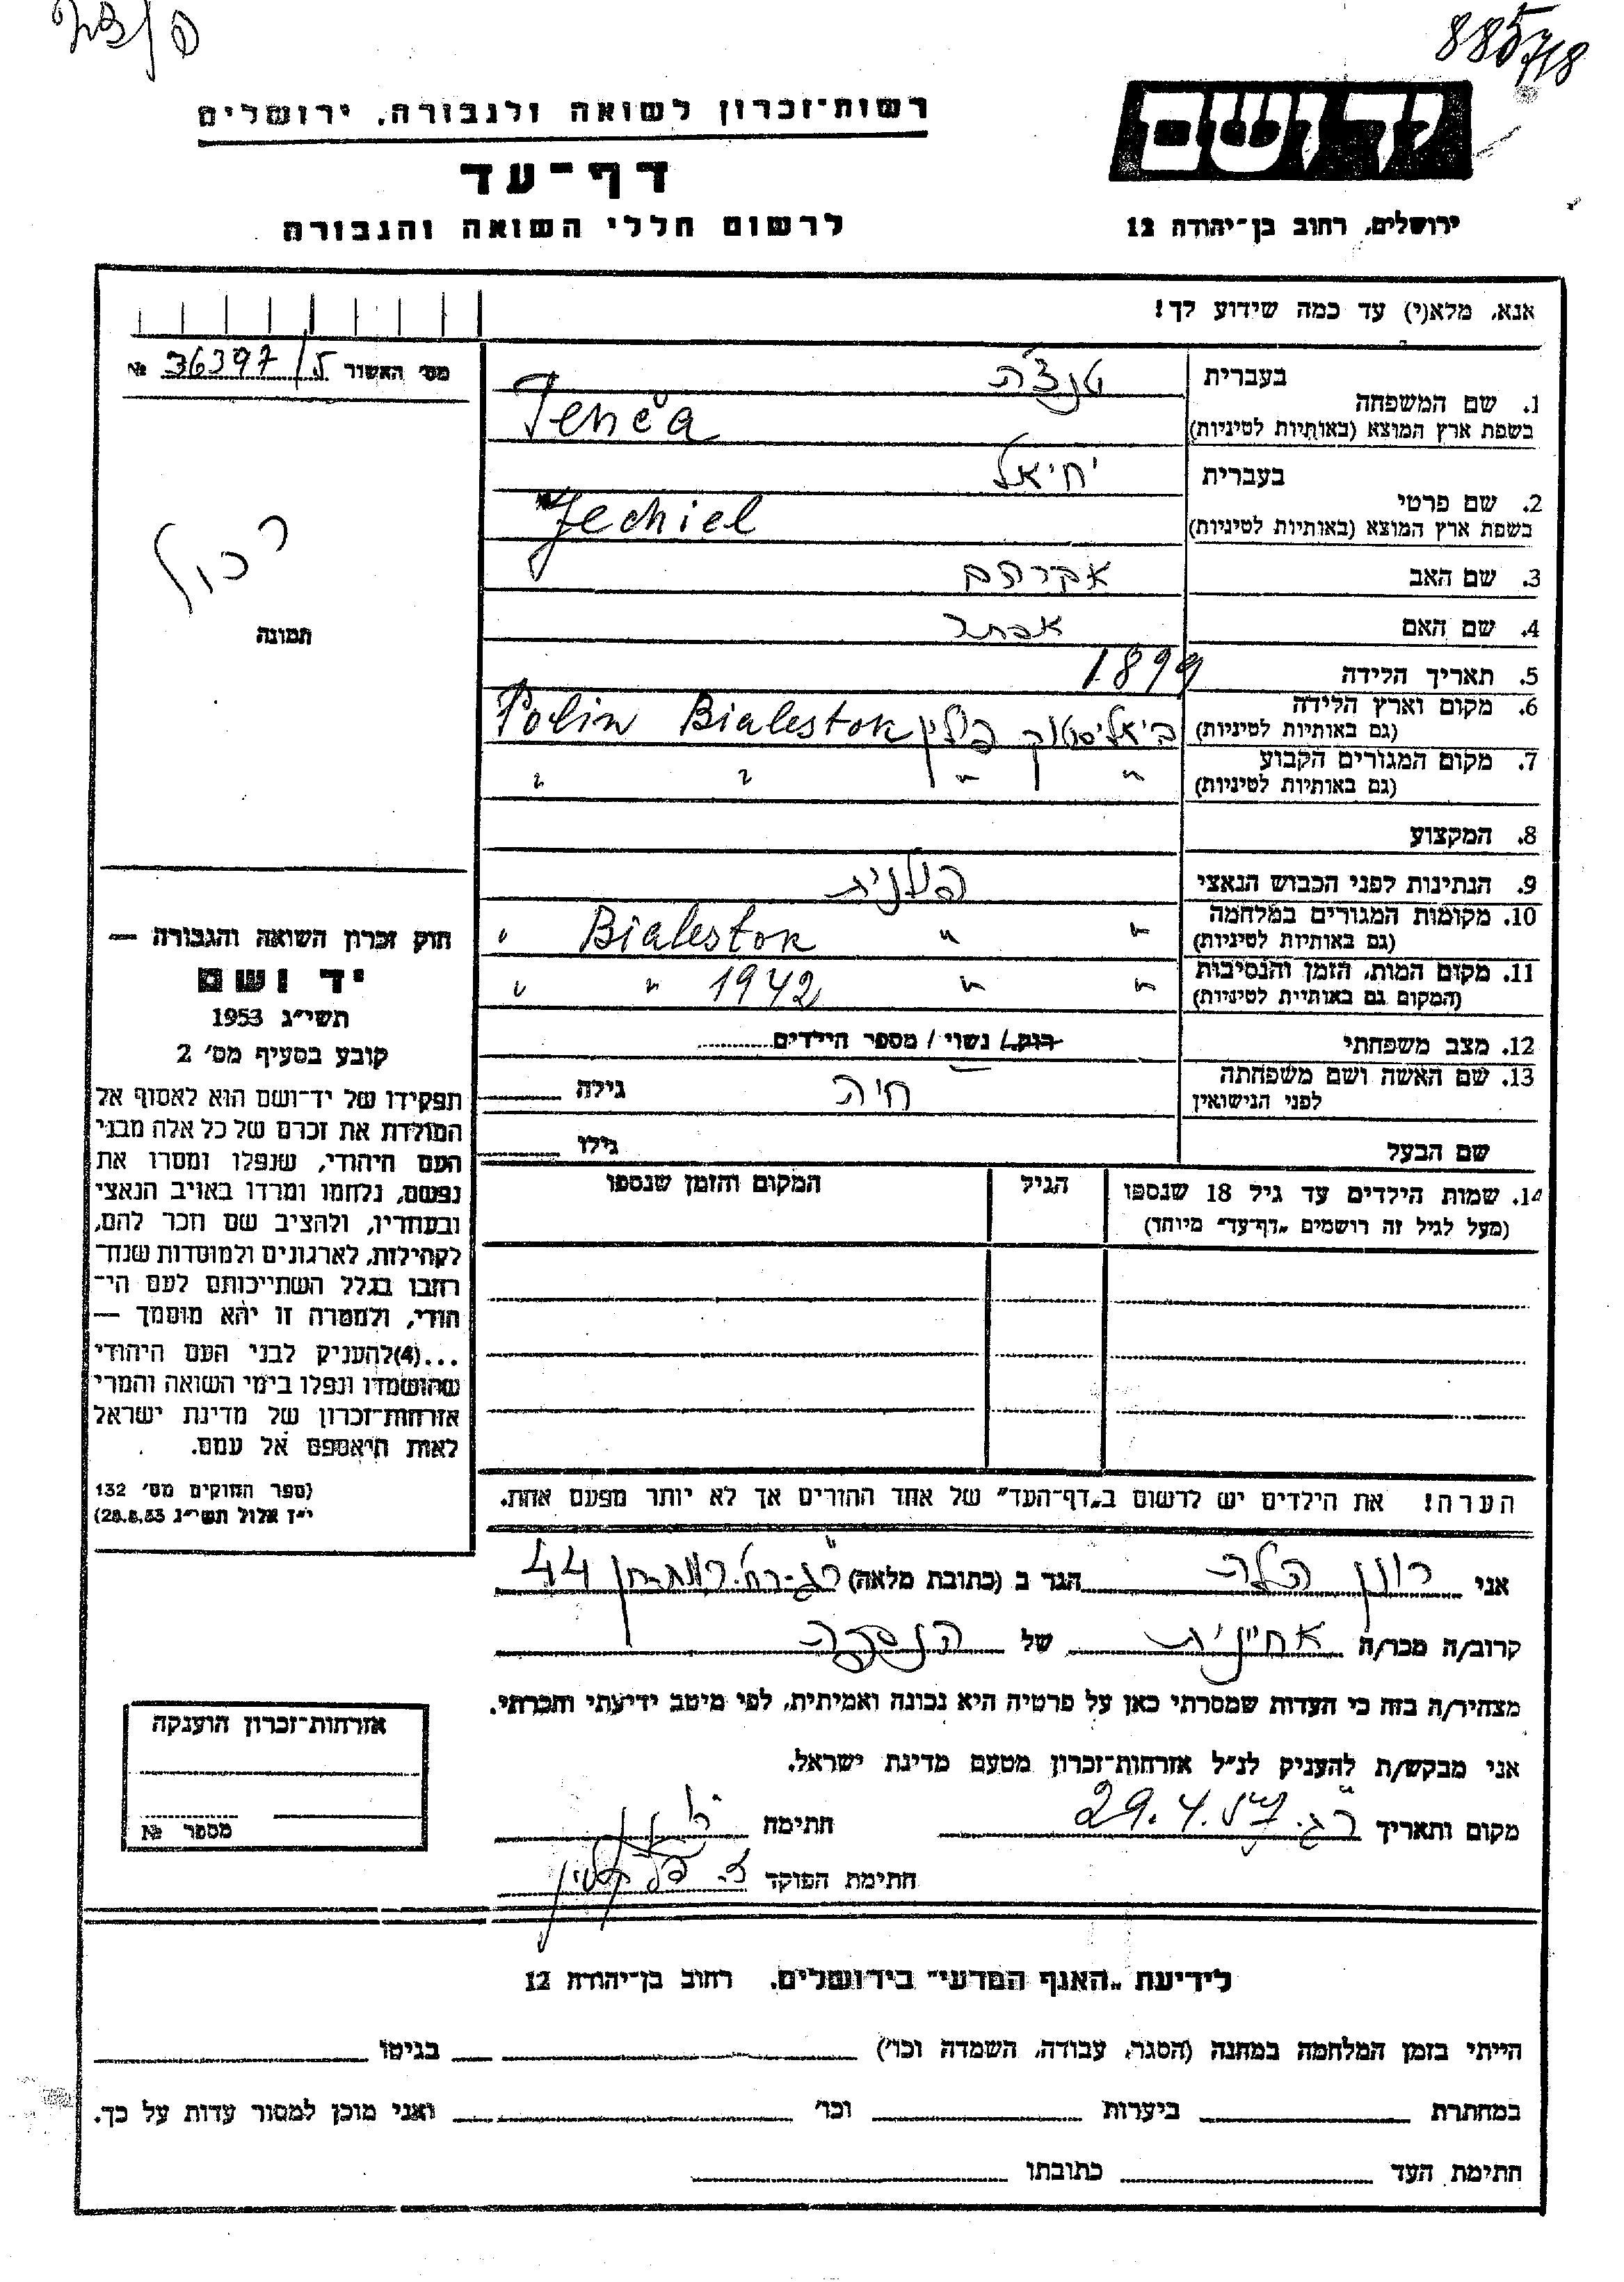 885718
יד ושם
ירושלים, רחוב בן־יהודה 12
רשות־זכרון לשואה ולגבורה, ירושלים
דף־עד
לרשום חללי השואה והגבורה
אנא, מלא(י) עד כמה שידוע לך!
מס׳ האשור 36397/5 №
תמונה
בעברית טנצ׳ה
1. שם המשפחה
בשפת ארץ המוצא (באותיות לטיניות) Tenča
בעברית יחיאל
2. שם פרטי
בשפת ארץ המוצא (באותיות לטיניות) Jechiel
3. שם האב אברהם
4. שם האם אסתר
5. תאריך הלידה 1899
6. מקום וארץ הלידה ביאליסטוק פולין Bialestok Polin
(גם באותיות לטיניות)
7. מקום המגורים הקבוע " " " "
(גם באותיות לטיניות)
8. המקצוע
9. הנתינות לפני הכבוש הנאצי פולנית
10. מקומות המגורים במלחמה " " Bialestok "
(גם באותיות לטיניות)
11. מקום המות, הזמן והנסיבות " " 1942 " "
(המקום גם באותיות לטיניות)
12. מצב משפחתי רווק/ נשוי / מספר הילדים
13. שם האשה ושם משפחתה חיה גילה
לפני הנישואין
שם הבעל גילו
14. שמות הילדים עד גיל 18 שנספו הגיל המקום והזמן שנספו
(מעל לגיל זה רושמים „דף־עד" מיוחד)
הערה! את הילדים יש לרשום ב„דף־העד" של אחד ההורים אך לא יותר מפעם אחת.
חוק זכרון השואה והגבורה —
יד ושם
תשי״ג 1953
קובע בסעיף מס׳ 2
תפקידו של יד־ושם הוא לאסוף אל
המולדת את זכרם של כל אלה מבני
העם היהודי, שנפלו ומסרו את
נפשם, נלחמו ומרדו באויב הנאצי
ובעוזריו, ולהציב שם וזכר להם,
לקהילות, לארגונים ולמוסדות שנח־
רבו בגלל השתייכותם לעם הי־
הודי, ולמטרה זו יהא מוסמך —
...(4) להעניק לבני העם היהודי
שהושמדו ונפלו בימי השואה והמרי
אזרחות־זכרון של מדינת ישראל
לאות היאספם אל עמם.
(ספר החוקים מס׳ 132
י״ז אלול תשי״ג 28.8.53)
אני רונן הלה הגר ב (כתובת מלאה) 44
קרוב/ה מכר/ה אחיינית של הנספה
מצהיר/ה בזה כי העדות שמסרתי כאן על פרטיה היא נכונה ואמיתית, לפי מיטב ידיעתי והכרתי.
אני מבקש/ת להעניק לנ״ל אזרחות־זכרון מטעם מדינת ישראל.
מקום ותאריך ר״ג. 29.4.57 חתימה
חתימת הפוקד
אזרחות־זכרון הוענקה
מספר №
לידיעת „האגף המדעי" בירושלים, רחוב בן־יהודה 12
הייתי בזמן המלחמה במחנה (הסגר, עבודה, השמדה וכו׳) בגיטו
במחתרת ביערות וכו׳ ואני מוכן למסור עדות על כך.
חתימת העד כתובתו